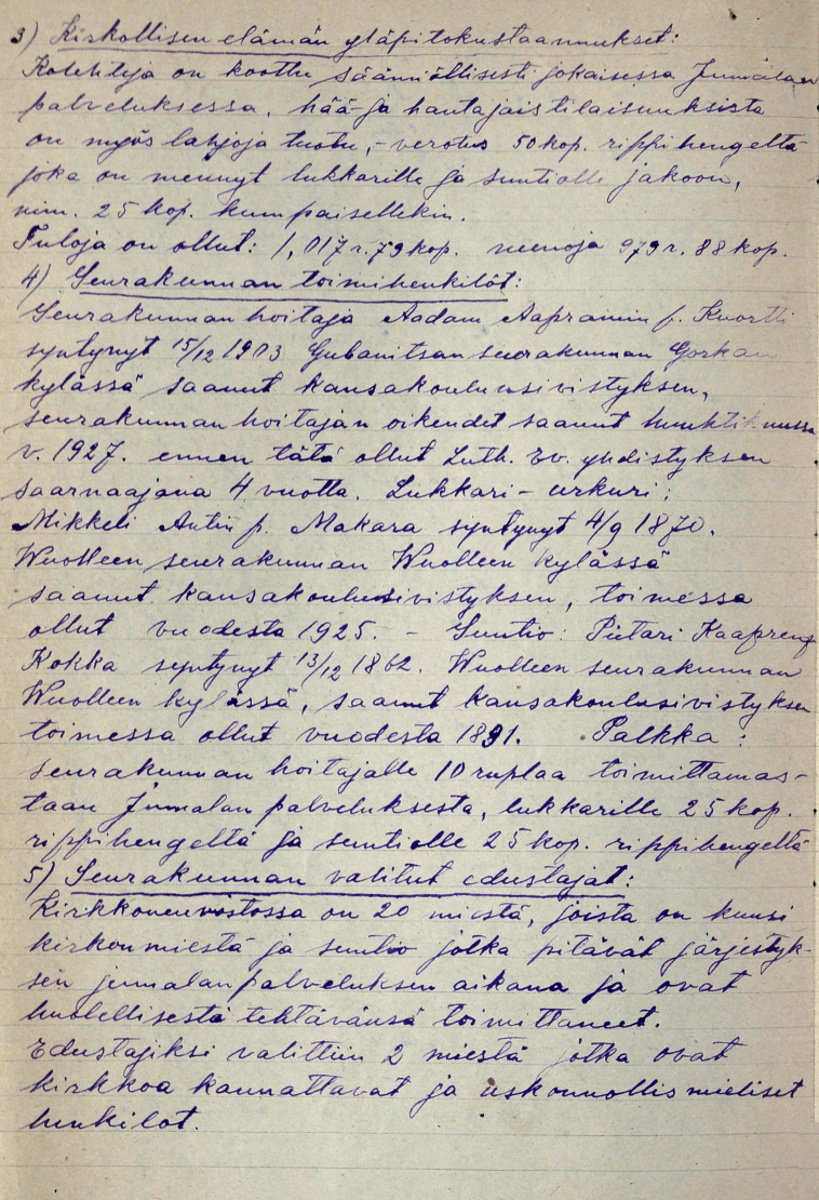 3) Kirkollisen elämän yläpitokustaannukset:
Kolehteja on koottu säännöllisesti jokaisessa Jumalan
palveluksessa, hää- ja hautajaistilaisuuksista
on myös lahjoja tuotu, - verotus 50 kop. rippihengeltä
joka on mennyt lukkarille ja suntiolle jakoon,
nim. 25 kop. kumpaisellekin.
Tuloja on ollut: 1,017 r. 79 kop. menoja 979 r. 88 kop.
4) Seurakunnan toimihenkilöt:
Seurakunnan hoitaja Aadam Aapramin p. Kuortti
syntynyt 15/12 1903 Gubanitsan seurakunnan Gorkan
kylässä saanut kansakoulusivistyksen,
seurakunnan hoitajan oikeudet saanut huuhtikuussa
v. 1927. ennen tätä ollut Luth. Ev. yhdistyksen
saarnaajana 4 vuotta. Lukkari - urkuri:
Mikkeli Antin p. Makara syntynyt 4/9 1870.
Wuolleen seurakunnan Wuolleen kylässä
saanut kansakoulusivistyksen, toimessa
ollut vuodesta 1925. - Suntio: Pietari Kaapren p.
Kokka syntynyt 13/12 1862. Wuolleen seurakunnan
Wuolleen kylässä, saanut kansakoulusivistyksen
toimessa ollut vuodesta 1891. Palkka:
seurakunnan hoitajalle 10 ruplaa toimittamas-
taan Jumalan palveluksesta, lukkarille 25 kop.
rippihengeltä ja suntiolle 25 kop. rippihengeltä
5) Seurakunnan valitut edustajat:
Kirkkoneuvostossa on 20 miestä, joista on kuusi
kirkonmiestä ja suntio jotka pitävät järjestyk-
sen jumalanpalveluksen aikana ja ovat
huolellisesti tehtävänsä toimittaneet.
Edustajiksi valittiin 2 miestä jotka ovat
kirkkoa kannattavat ja uskonnollismieliset
henkilöt.